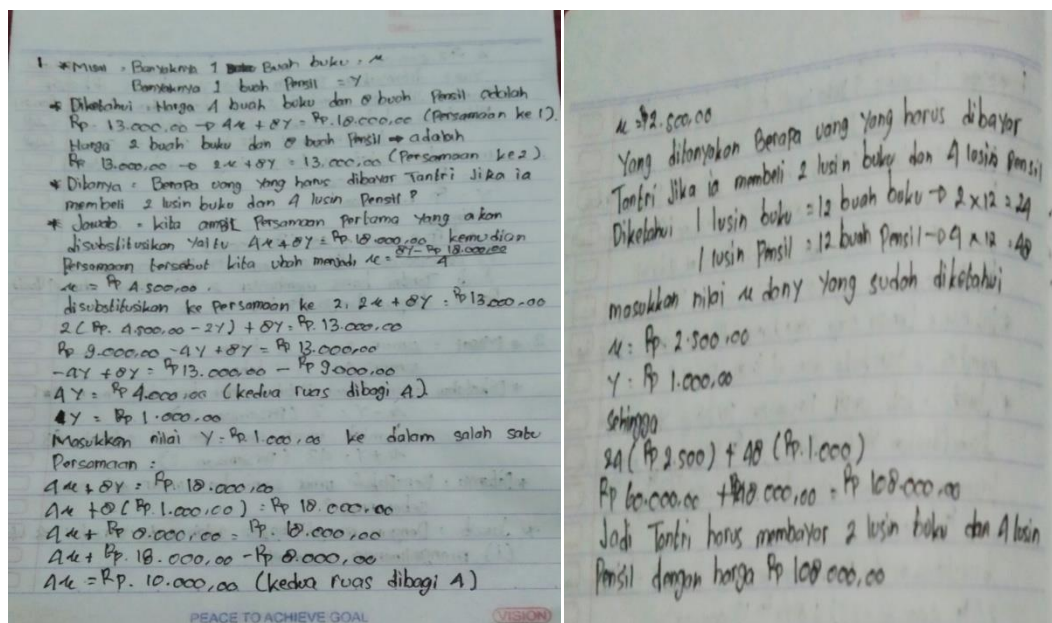 1 * Misal : Banyaknya 1 Buah buku : x
Banyaknya 1 buah Pensil = Y
* Diketahui : Harga 4 buah buku dan 8 buah Pensil adalah
Rp. 13.000,00 → 4x + 8Y = Rp. 18.000,00 (Persamaan ke 1).
Harga 2 buah buku dan 8 buah Pensil → adalah
Rp 13.000,00 → 2x + 8Y = 13.000,00 (Persamaan ke 2)
* Ditanya : Berapa uang yang harus dibayar Tantri Jika ia
membeli 2 lusin buku dan 4 lusin Pensil ?
* Jawab : kita ambil Persamaan Pertama yang akan
disubstitusikan Yaitu 4x + 8Y = Rp. 18.000,00 kemudian
Persamaan tersebut kita ubah menjadi x = 8Y - Rp 18.000,00 / 4
x = Rp 4.500,00.
disubstitusikan ke Persamaan ke 2, 2x + 8Y = Rp 13.000,00
2 (Rp. 4.500,00 - 2Y) + 8Y = Rp. 13.000,00
Rp 9.000,00 - 4Y + 8Y = Rp 13.000,00
-4Y + 8Y = Rp 13.000,00 - Rp 9.000,00
4Y = Rp 4.000,00 (kedua ruas dibagi 4)
4Y = Rp 1.000,00
Masukkan nilai Y = Rp. 1.000,00 ke dalam salah satu
Persamaan :
4x + 8Y = Rp. 18.000,00
4x + 8 (Rp 1.000,00) = Rp 18.000,00
4x + Rp 8.000,00 = Rp. 18.000,00
4x + Rp. 18.000,00 - Rp 8.000,00
4x = Rp. 10.000,00 (kedua ruas dibagi 4)
PEACE TO ACHIEVE GOAL
VISION
x = 2.500,00
Yang ditanyakan Berapa uang Yang harus dibayar
Tantri Jika ia membeli 2 lusin buku dan 4 lusin Pensil
Diketahui 1 lusin buku = 12 buah buku → 2 x 12 = 24
1 lusin Pensil : 12 buah Pensil → 4 x 12 = 48
masukkan nilai x dan y Yang sudah diketahui
x : Rp. 2.500,00
Y : Rp 1.000,00
sehingga
24 (Rp 2.500) + 48 (Rp. 1.000)
Rp 60.000,00 + 48.000,00 = Rp 108.000,00
Jadi Tantri harus membayar 2 lusin buku dan 4 lusin
Pensil dengan harga Rp 108 000,00